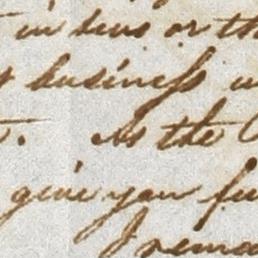 in  or th
business w
. As the C
give you fu
I rema